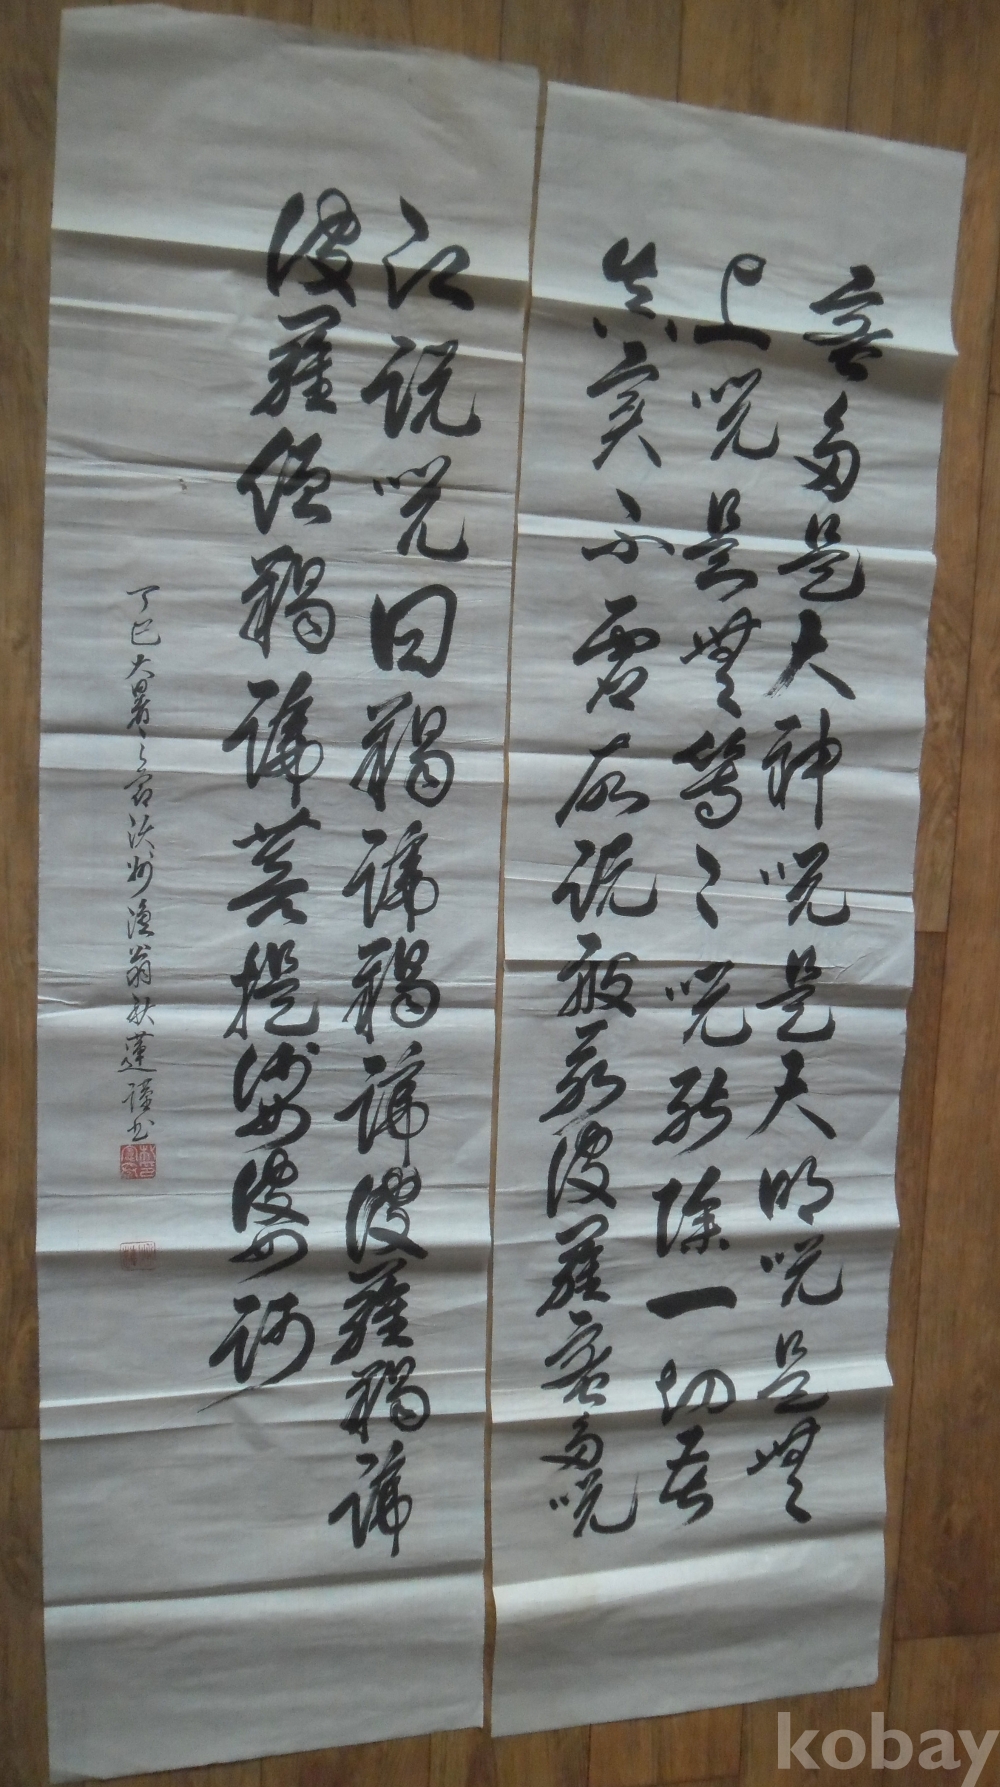 蜜多是大神呪是大明呪是無
上呪是無等々呪能除一切苦
真實不虛故說般若波羅蜜多呪
即說呪曰羯諦羯諦波羅羯諦
波羅僧羯諦菩提娑婆訶
丁巳大暑之 沃州漁翁秋蓮謹書
kobay